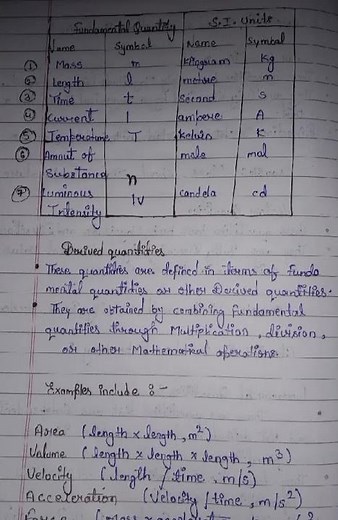 Fundamental Quantity S.I. Units
Name Symbol Name Symbol
① Mass m Kilogram Kg
② Length l metre m
③ Time t Second s
④ Current I ampere A
⑤ Temperature T Kelvin K
⑥ Amout of mole mol
Substance n
⑦ Luminous Iv candela cd
Intensity
Derived quantities
• These quantities are defined in terms of funda
mental quantities or other Derived quantities.
• They are obtained by combining fundamental
quantities through Multiplication, division,
or other Mathematical operations.
Examples include :-
Area (length x length, m²)
Volume (length x length x length, m³)
Velocity (length / time, m/s)
Acceleration (Velocity / time, m/s²)